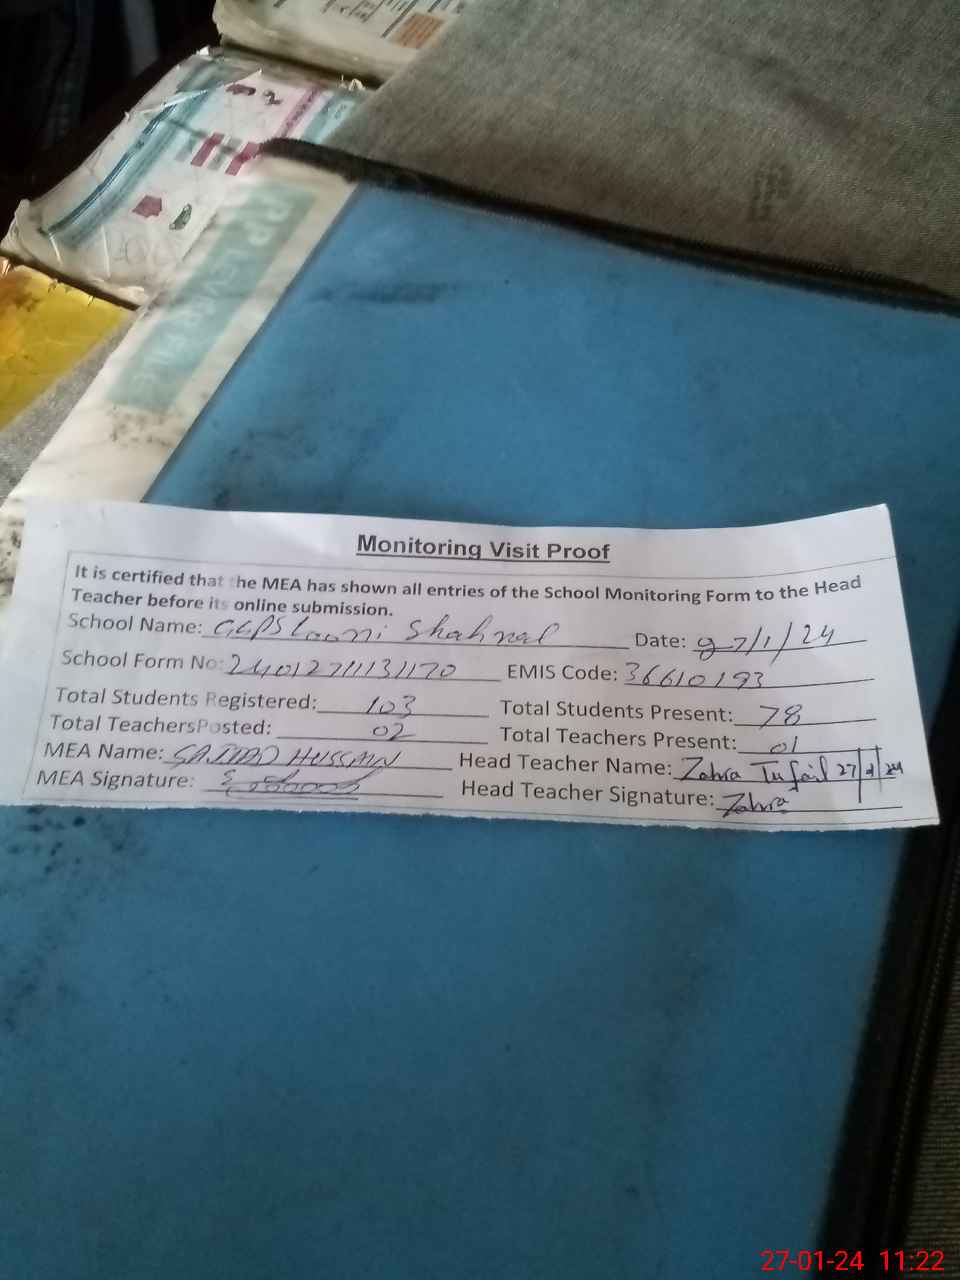 Monitoring Visit Proof
It is certified that the MEA has shown all entries of the School Monitoring Form to the Head
Teacher before its online submission.
School Name: GGPS Looni Shahnal Date: 27/1/24
School Form No: 24012711131170 EMIS Code: 36610193
Total Students Registered: 103 Total Students Present: 78
Total TeachersPosted: 02 Total Teachers Present: 01
MEA Name: SAJJAD HUSSAIN Head Teacher Name: Zahra Tufail 27/1/24
MEA Signature: Head Teacher Signature: Zahra
27-01-24 11:22